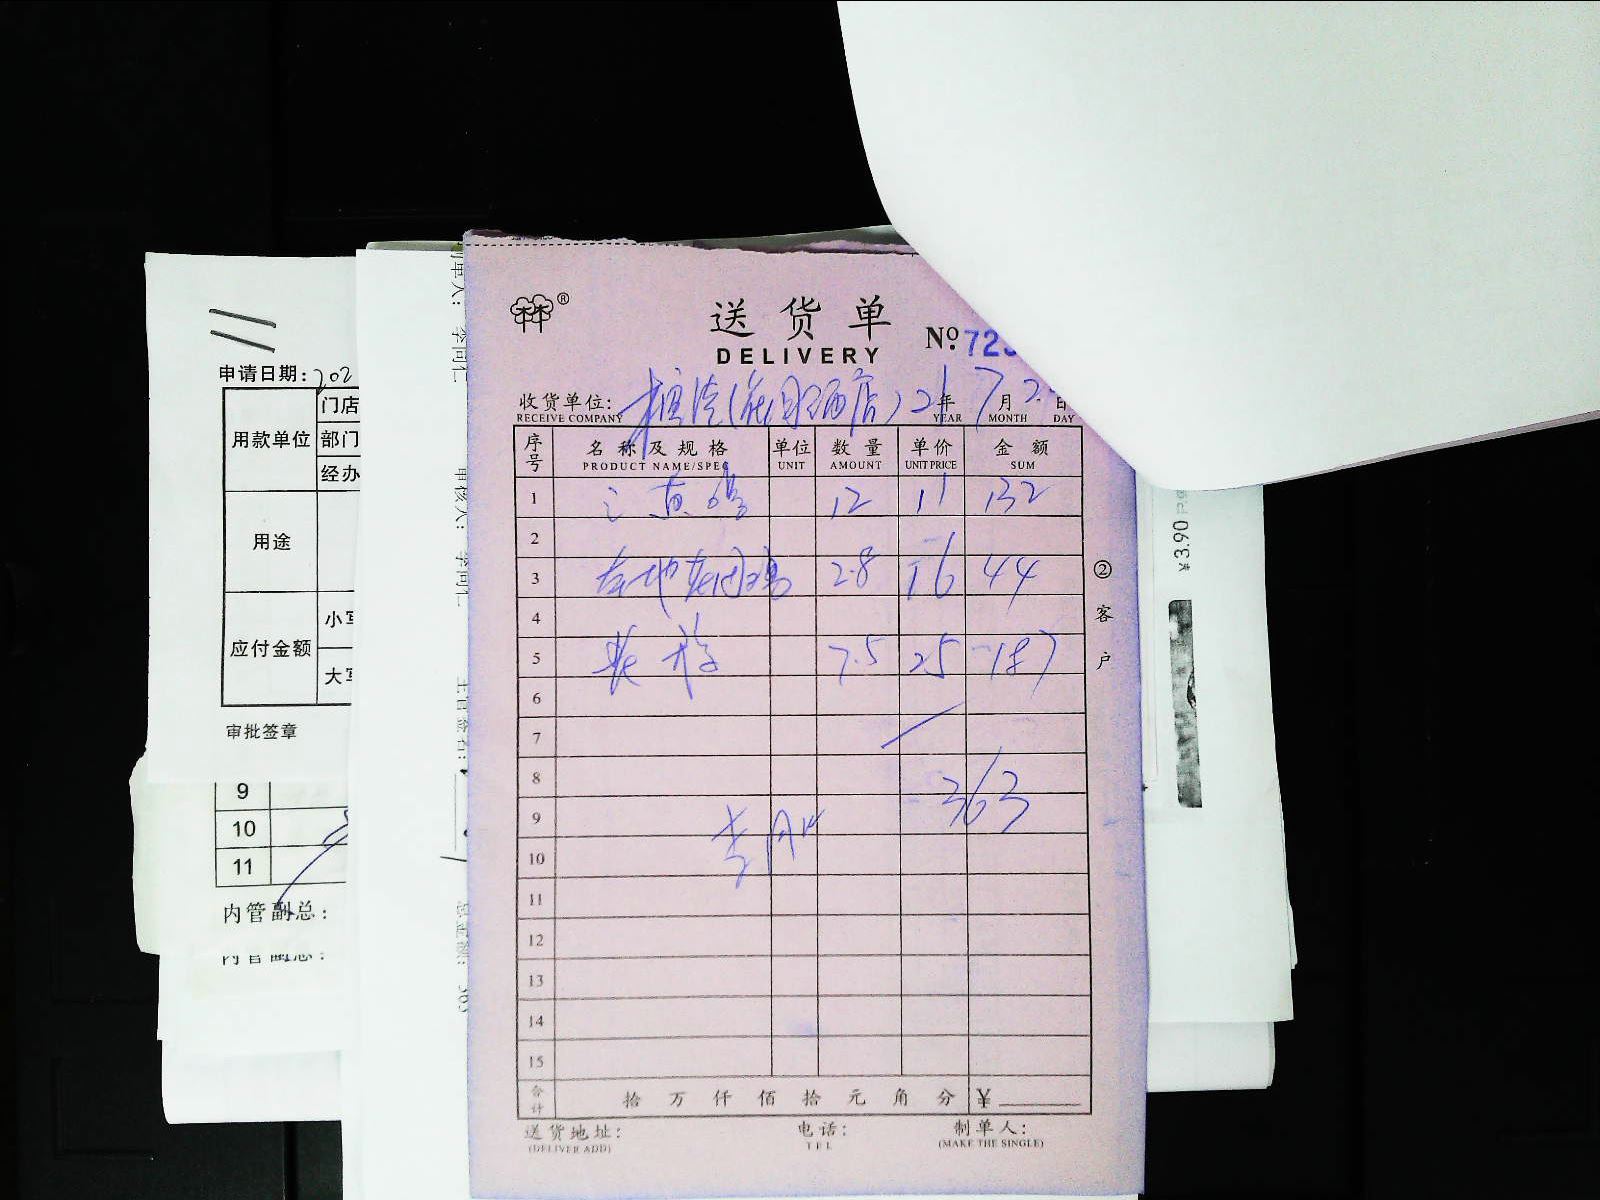 送货单
DELIVERY
No. 72
收货单位: (花园酒店) 21年 7月 2 日
RECEIVE COMPANY YEAR MONTH DAY
序号 名称及规格 单位 数量 单价 金额
PRODUCT NAME/SPEC UNIT AMOUNT UNIT PRICE SUM
1 12 11 132
2
3 本地 2.8 16 44
4
5 7.5 25 187
6
7
8
363
9
10
11
12
13
14
15
合计 拾 万 仟 佰 拾 元 角 分 ¥
送货地址: 电话: 制单人:
(DELIVER ADD) TEL (MAKE THE SINGLE)
②客户
申请日期: 202
用款单位 门店
部门
经办
用途
应付金额 小写
大写
审批签章
9
10
11
内管副总:
内管副总:
制单人: 李同仁
审核人: 李同仁
主管签名:
总金额: 363
3.90